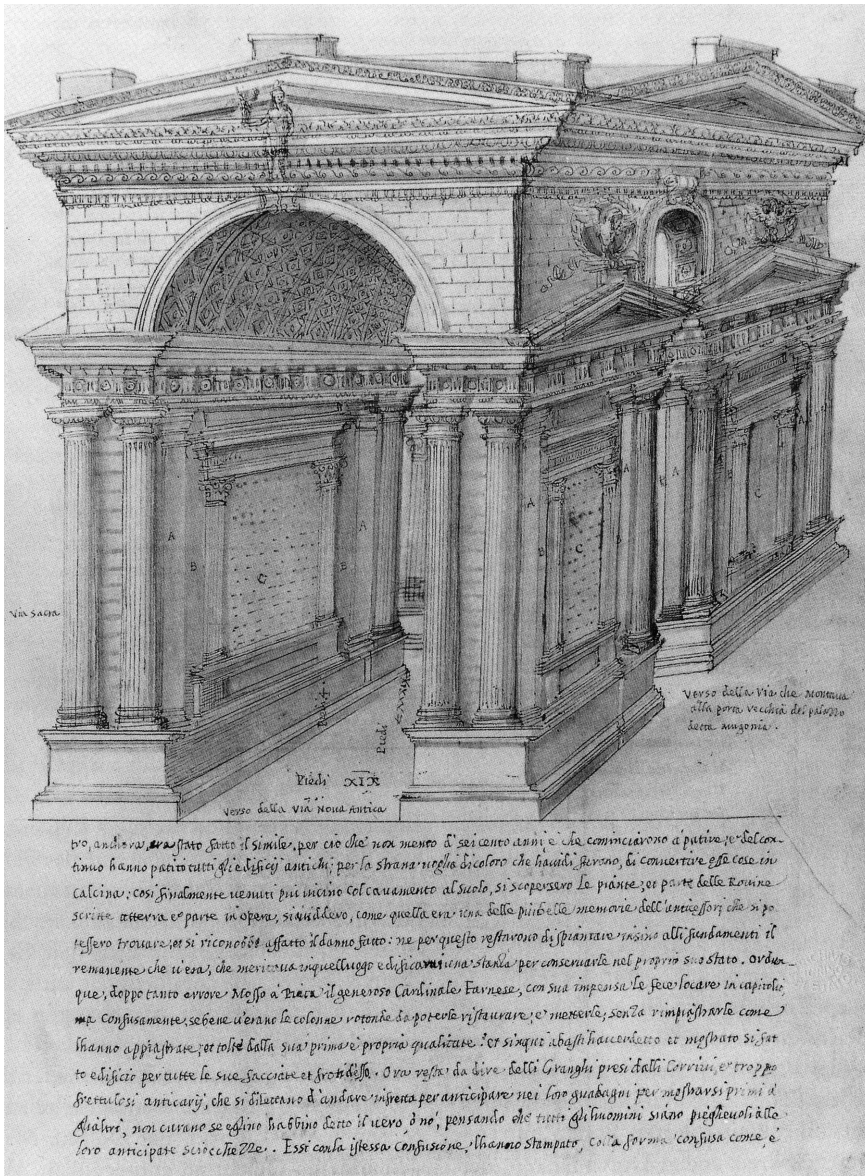 Via Sacra
A
B
C
B
A
A
B
C
B
A
A
A
B
C
B
A
Piedi
Piedi
Piedi XIR
Verso della Via Nova Antica
Verso della Via che Montava
alla porta vecchia del palazzo
detta mugonia.
tro, anchora, era stato fatto il simile, per ciò che non meno d' sei cento anni è che cominciarono à patire, e del con-
tinuo hanno patito tutti gli edificij antichi; per la strana voglia di coloro che havidi furono, di convertire esse cose in
Calcina; cosi finalmente venuti piu vicino col cavamento al suolo, si scopersero le piante; et parte delle Rovine
scritte atterra e parte in opera, si viddero, come quella era una delle piu belle memorie dell'anticessori che si po
tessero trovare, et si riconobbe affatto il danno fatto: ne per questo restarono di spiantare insino alli fundamenti il
remanente che v'era, che meritava in quel luogo edificarvi una stanza per conservarle nel proprio suo stato. Ordun-
que, doppo tanto errore Mosso à Pietà il generoso Cardinale Farnese, con sua impensa le fece locare in capitolio,
ma confusamente, sebene v'erano le colonne rotonde da poterle ristaurare, e metterle, senza rimpiastrarle come
lhanno appiastrate, et tolte dalla sua prima è propria qualitate: et sin qui abasti haver detto et mostrato si fat
to edificio per tutte le sue facciate et fronti. Ora resta da dire delli Granghi presi dalli Corrivi, et troppo
frettulosi anticarij, che si dilettano d'andare in fretta per anticipare nei loro guadagni per mostrarsi primi à
gli altri, non curano se eglino habbino detto il vero, ò nò, pensando che tutti gli huomini siano pieghevoli alle
loro anticipate sciocchezze. Essi con la istessa Confusione, l'hanno stampato, con la forma confusa come, è